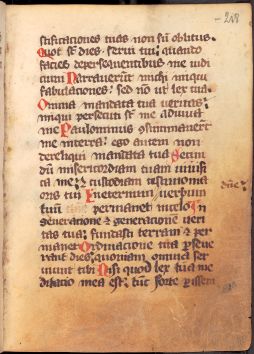 208
stificationes tuas non sū oblitus.
Quot st dies servi tui: quando
facies de persequentibus me iudi
cium Narraverunt michi iniqui
fabulationes: sed nō ut lex tua.
Omnia mandata tua veritas:
iniqui persecuti st me adiuva
me Paulominus cōsummaverūt
me in terra: ego autem non
dereliqui mandata tua Secun
dū misericordiam tuam vivifi
ca me: & custodiam testimonia
oris tui In eternum: verbum
tuū permanet in celo In
generatione & generationē veri
tas tua: fundasti terram & per
manet Ordinatione tua perseve
rant dies: quoniam omnia ser
viunt tibi Nisi quod lex tua me
ditatio mea est: tūc forte periissem